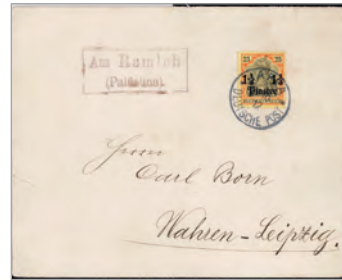 Aus Ramleh
(Palästina).
25 25
1¼ 1¼
Piaster
DEUTSCHE POST
Herrn
Carl Born
Wahren-Leipzig.